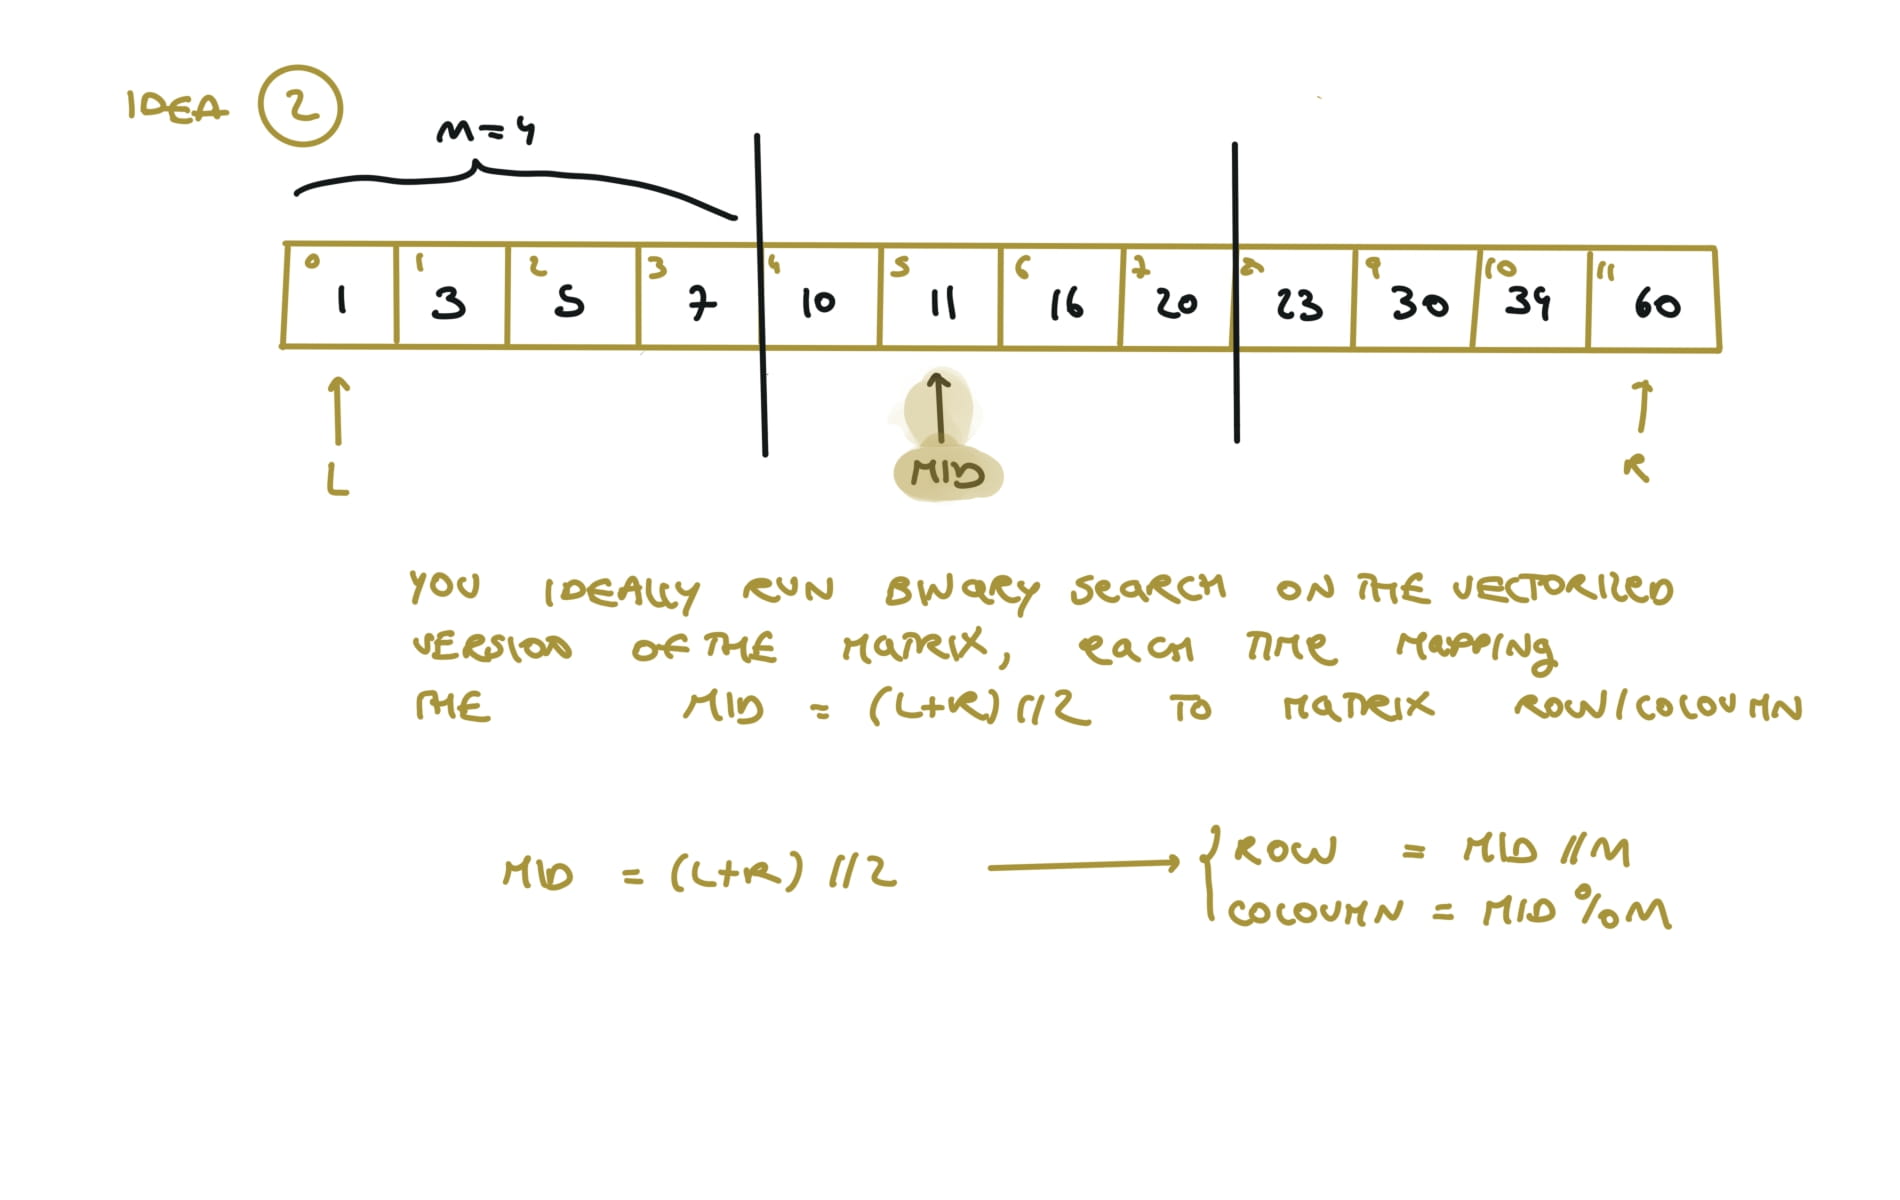 IDEA 2
M=4
0 1 2 3 4 5 6 7 8 9 10 11
1 3 5 7 10 11 16 20 23 30 34 60
L MID R
YOU IDEALLY RUN BINARY SEARCH ON THE VECTORIZED
VERSION OF THE MATRIX, EACH TIME MAPPING
THE MID = (L+R)//2 TO MATRIX ROW/COLOUMN
MID = (L+R)//2 → { ROW = MID //M
COLOUMN = MID %M